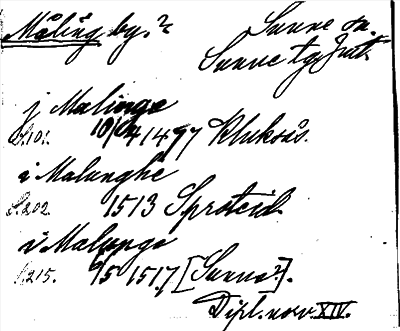 Måling by. Sunne sn.
Sunne tg Jmtl.
j Malinge
S. 101. 10/4 1497 Klukås.
i Malunghe
S. 202. 1513 Sproteid
i Malunge
S. 215. 9/5 1517 [Sunne?].
Dipl. norv. XIV.